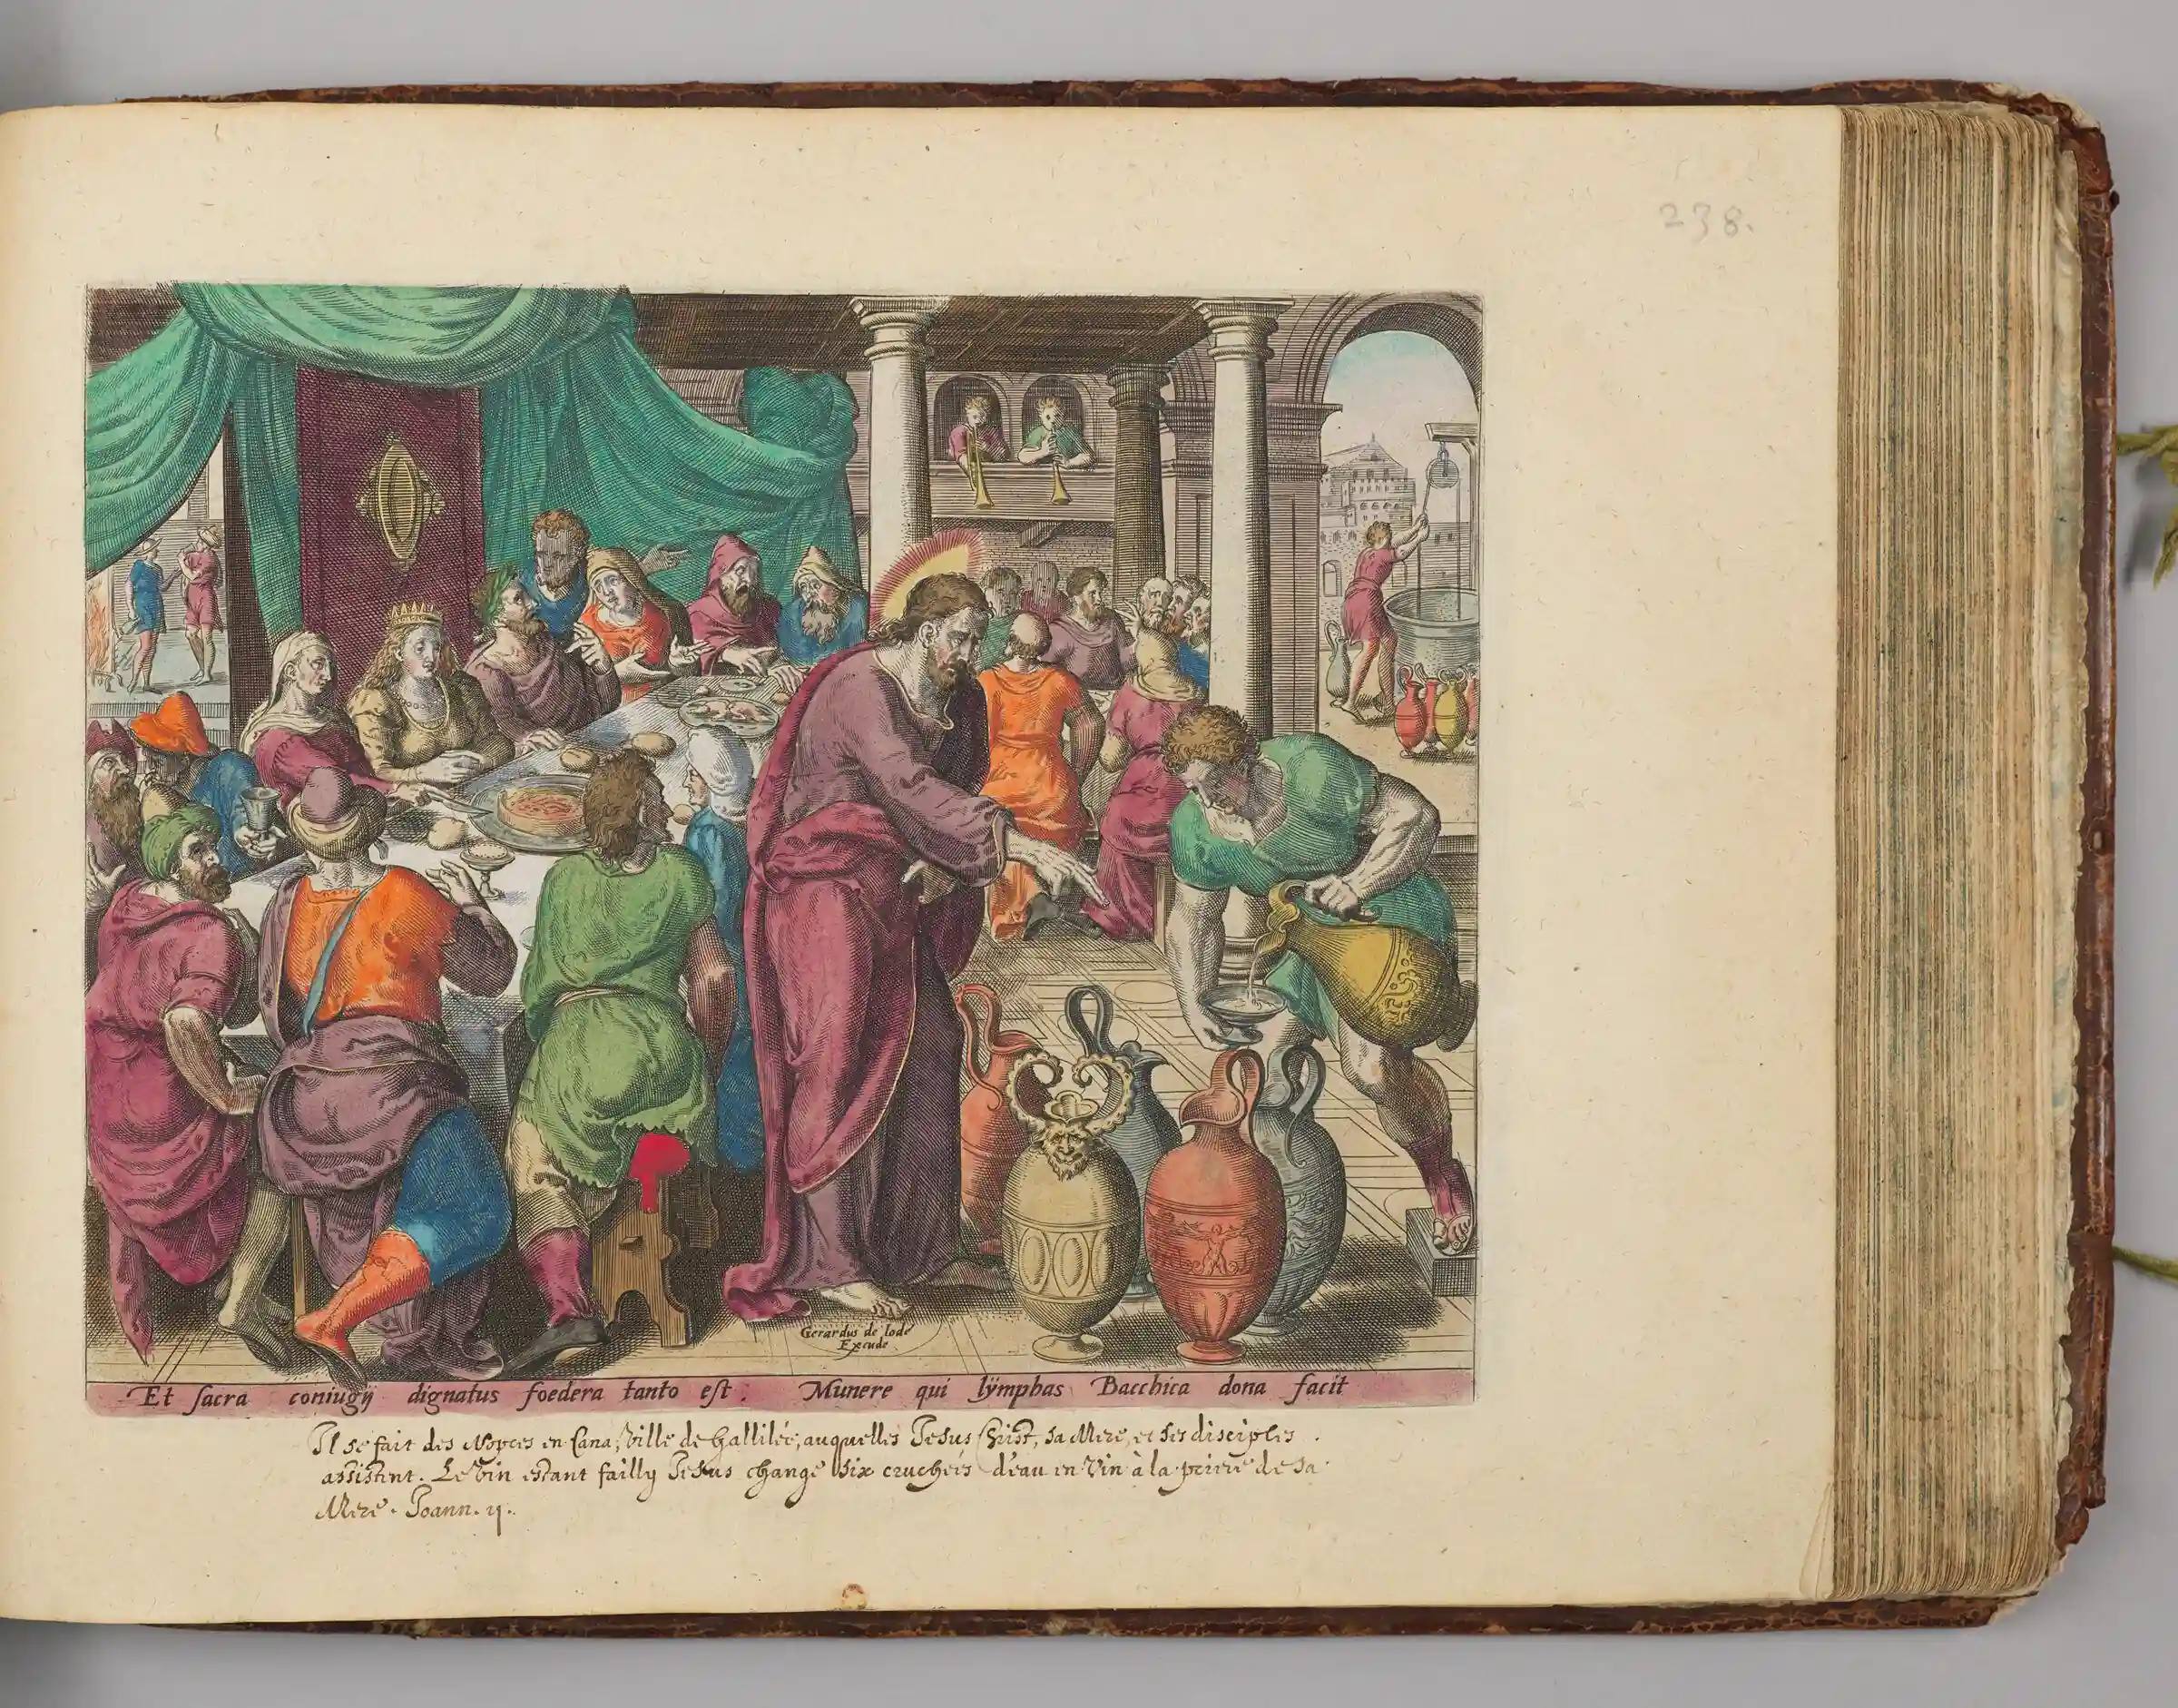 238.
Gerardus de Iode
Excude
Et sacra coniugij dignatus foedera tanto est: Munere qui lÿmphas Bacchica dona facit
Il se fait des Nopces en Cana, Ville de Gallilée, auquelles Jesus Christ, sa Mere, et ses disciples
assistent. Le Vin estant failly Jesus change six cruches d'eau en Vin à la priere de sa
Mere. Joann. ij.